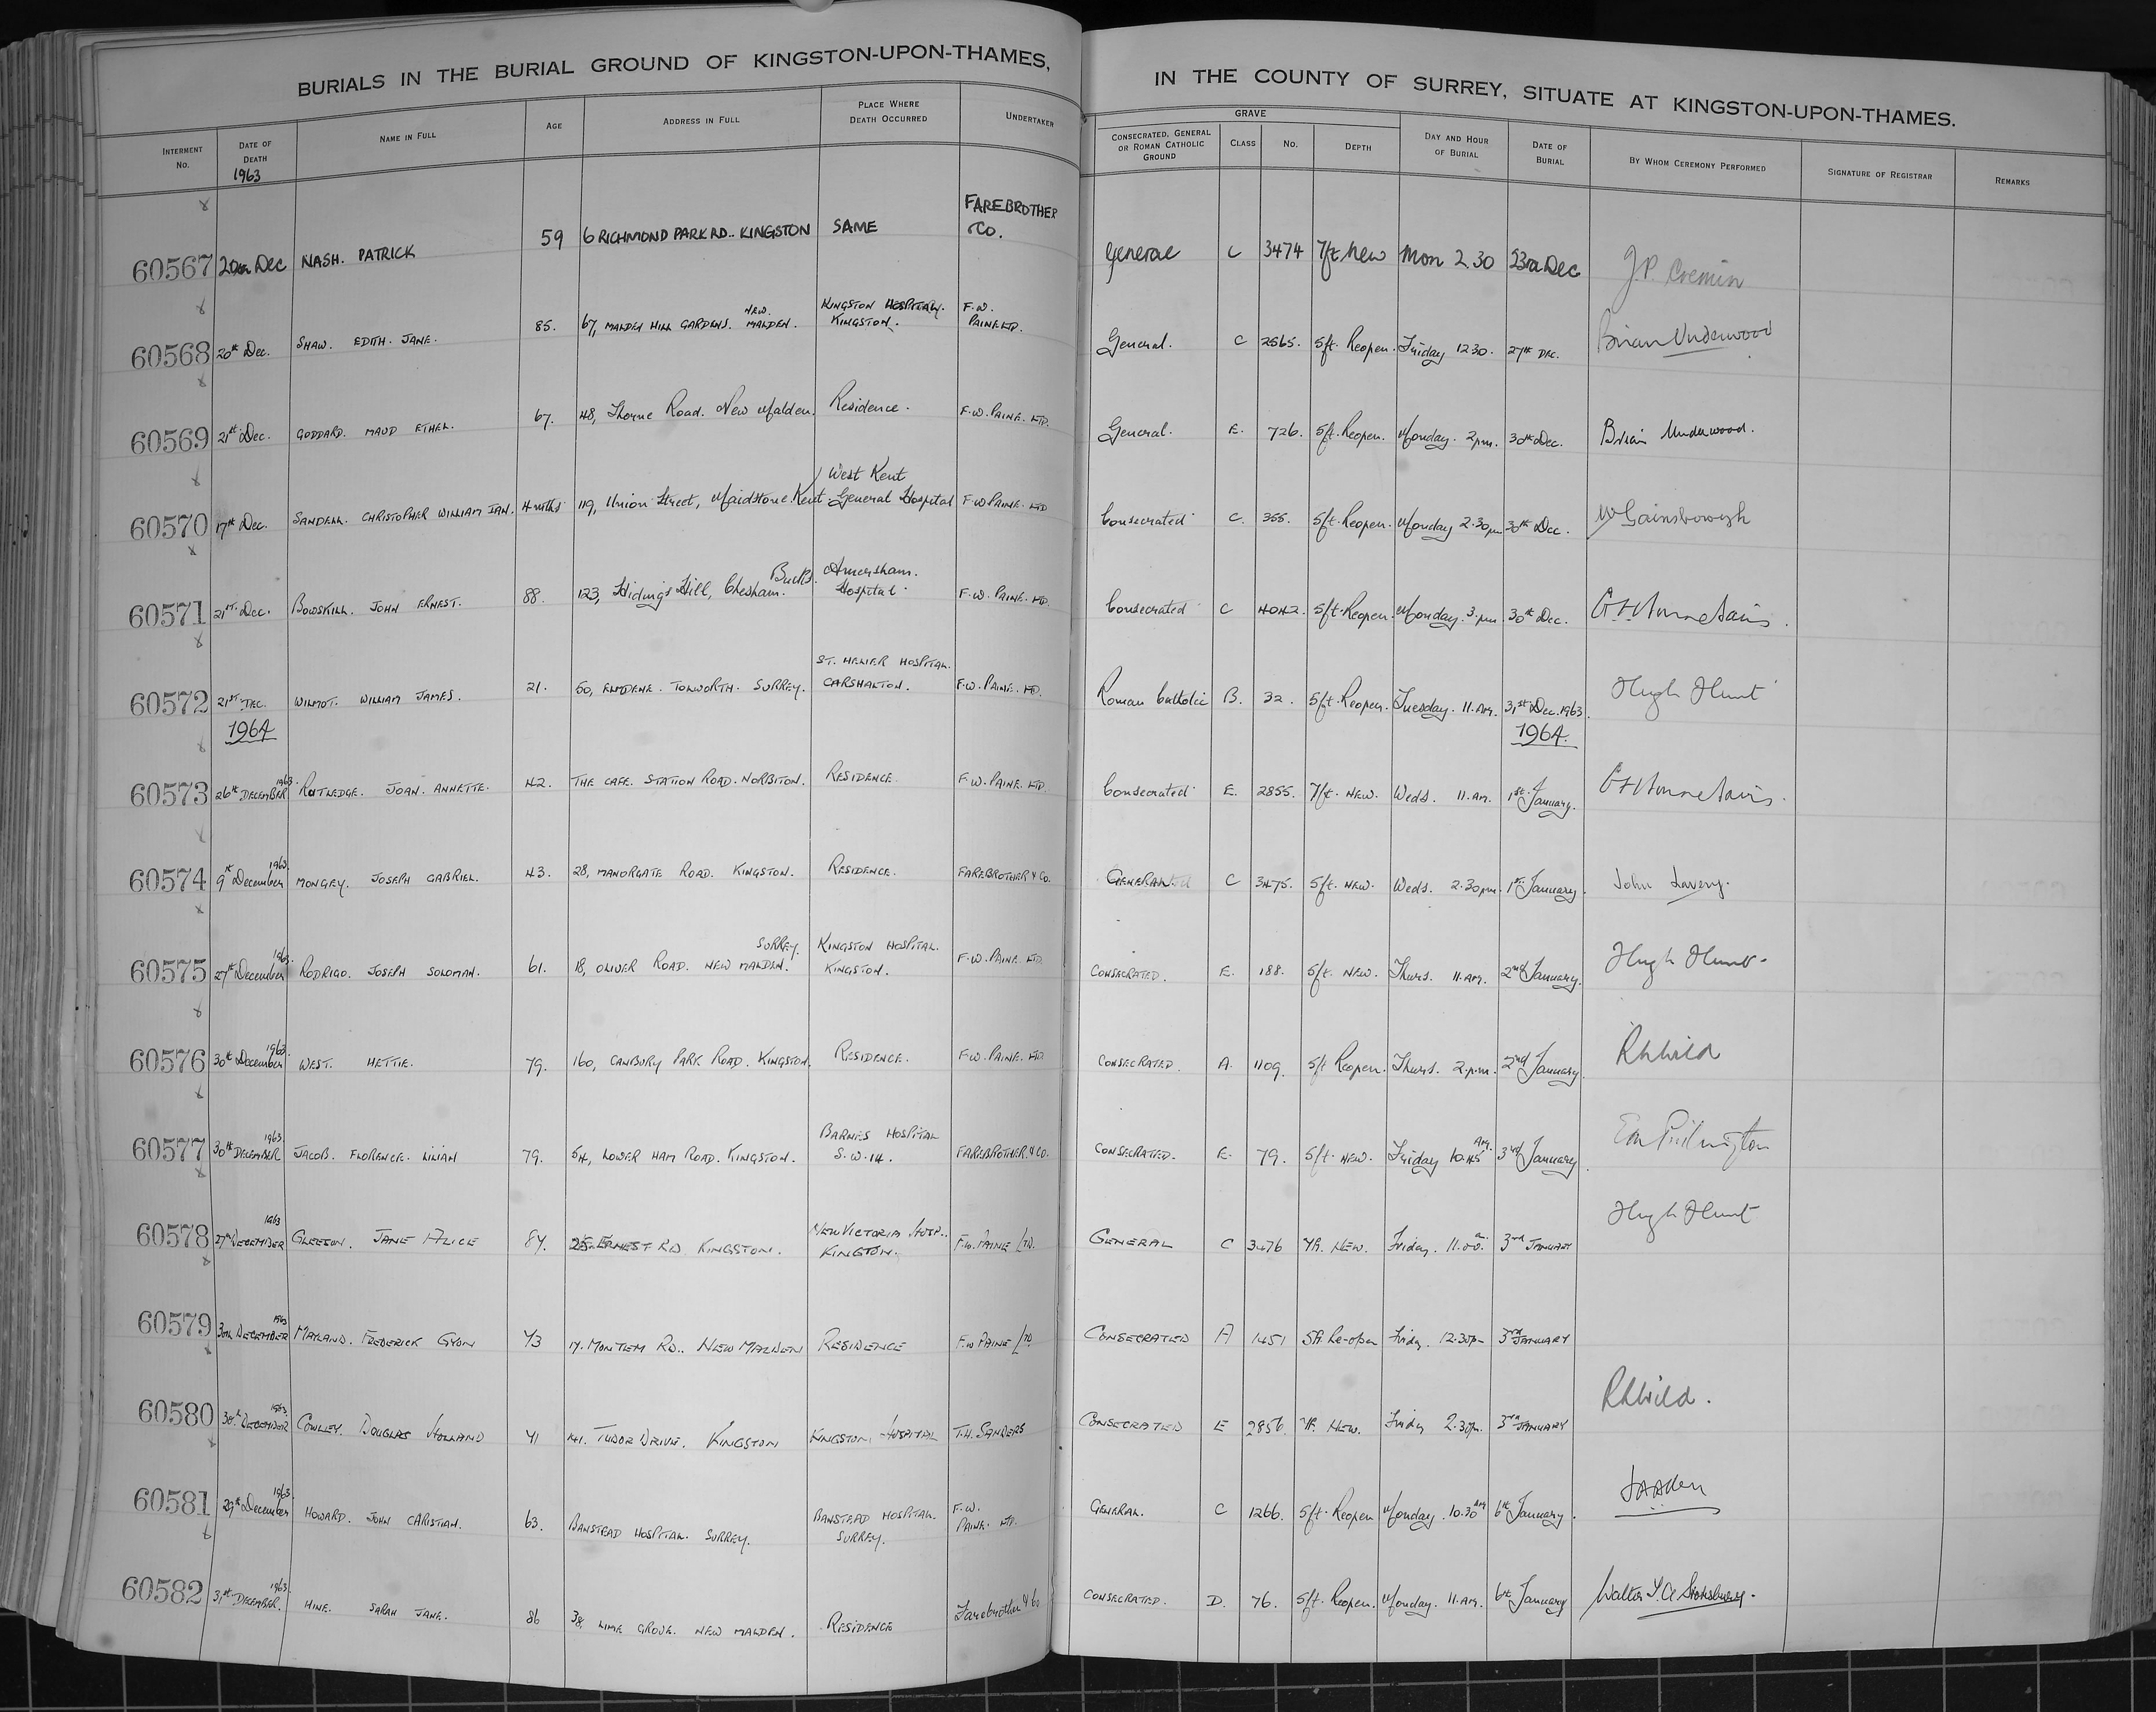 BURIALS IN THE BURIAL GROUND OF KINGSTON-UPON-THAMES, IN THE COUNTY OF SURREY, SITUATE AT KINGSTON-UPON-THAMES.
GRAVE
INTERMENT No. DATE OF DEATH NAME IN FULL AGE ADDRESS IN FULL PLACE WHERE DEATH OCCURRED UNDERTAKER CONSECRATED, GENERAL OR ROMAN CATHOLIC GROUND CLASS No. DEPTH DAY AND HOUR OF BURIAL DATE OF BURIAL BY WHOM CEREMONY PERFORMED SIGNATURE OF REGISTRAR REMARKS
1963
60567 20th Dec NASH. PATRICK 59 6 RICHMOND PARK RD.. KINGSTON SAME FAREBROTHER & Co. General C 3474 7ft New Mon 2.30 23rd Dec J.P. Cremin
60568 20th Dec. SHAW. EDITH. JANE. 85. 67, MALDEN HILL GARDENS. NEW MALDEN. KINGSTON HOSPITAL. KINGSTON. F.W. PAINE LTD. General. C 2565. 5ft. Reopen. Friday 12 30. 27th DEC. Brian Underwood
60569 21st Dec. GODDARD. MAUD ETHEL. 67. 48, Thorne Road. New Malden. Residence. F.W. PAINE. LTD. General. E. 726. 5ft. Reopen. Monday. 2pm. 30th Dec. Brian Underwood.
60570 17th Dec. SANDELL. CHRISTOPHER WILLIAM IAN. 4 mths 119, Union Street, Maidstone. Kent. West Kent General Hospital F.W PAINE. LTD Consecrated C. 355. 5ft. Reopen. Monday 2.30pm 30th Dec. W Gainsborough
60571 21st Dec. BOWSKILL. JOHN ERNEST. 88. 123, Hidings Hill, Chesham. Bucks. Amersham. Hospital. F.W. PAINE. LTD. Consecrated C 4042. 5ft. Reopen. Monday. 3.pm. 30th Dec.
60572 21st DEC. WILMOT. WILLIAM JAMES. 21. 50, ELMDENE. TOLWORTH. SURREY. ST. HELIER HOSPITAL. CARSHALTON. F.W. PAINE. LTD. Roman Catholic B. 32. 5ft. Reopen. Tuesday. 11. A.M. 31st Dec. 1963. Hugh Hunt
1964 1964.
60573 26th DECEMBER 1963. RUTLEDGE. JOAN. ANNETTE. 42. THE CAFE. STATION ROAD. NORBITON. RESIDENCE. F.W. PAINE. LTD. Consecrated E. 2855. 7ft. NEW. Weds. 11. A.M. 1st January.
60574 9th December 1963. MONGEY. JOSEPH GABRIEL. 43. 28, MANORGATE ROAD. KINGSTON. RESIDENCE. FAREBROTHER & Co. GENERAL C 3475. 5ft. NEW. Weds. 2.30pm. 1st January. John Lavery.
60575 27th December 1963. RODRIGO. JOSEPH SOLOMAN. 61. 18, OLIVER ROAD. NEW MALDEN. SURREY. KINGSTON HOSPITAL. KINGSTON. F.W. PAINE. LTD. CONSECRATED. E. 188. 5ft. NEW. Thurs. 11. A.M. 2nd January. Hugh Hunt.
60576 30th December 1963. WEST. HETTIE. 79. 160, CANBURY PARK ROAD. KINGSTON. RESIDENCE. F.W. PAINE. LTD. CONSECRATED. A. 1109. 5ft Reopen. Thurs. 2.p.m. 2nd January. R L Wild
60577 30th DECEMBER 1963. JACOB. FLORENCE. LILIAN 79. 54, LOWER HAM ROAD. KINGSTON. BARNES HOSPITAL S.W.14. FAREBROTHER. & Co. CONSECRATED. E. 79. 5ft. NEW. Friday 10.45 AM. 3rd January. Eric Pilkington
60578 27th DECEMBER 1963 GLEESON. JANE ALICE 84. 25 ERNEST RD. KINGSTON. NEW VICTORIA HOSP.. KINGSTON. F.W. PAINE LTD. GENERAL C 3476 7ft. NEW. Friday. 11.00 a. 3rd JANUARY Hugh Hunt
60579 30th DECEMBER 1963 MAYLAND. FREDERICK GYON 73 17. MONTEM RD.. NEW MALDEN RESIDENCE F.W PAINE LTD. CONSECRATED A 1451 5ft. Re-open Friday. 12.30pm 3rd JANUARY
60580 30th DECEMBER 1963. COWLEY. DOUGLAS HOLLAND 71 141. TUDOR DRIVE. KINGSTON KINGSTON HOSPITAL T.H. SANDERS CONSECRATED E 2856 7ft. NEW. Friday 2.30pm. 3rd JANUARY R L Wild.
60581 29th December 1963. HOWARD. JOHN CHRISTIAN. 63. BANSTEAD HOSPITAL. SURREY. BANSTEAD HOSPITAL. SURREY. F.W. PAINE. LTD. GENERAL. C 1266. 5ft. Reopen Monday. 10.30 AM 6th January.
60582 31st DECEMBER. 1963. HINE. SARAH JANE. 86 38, LIME GROVE. NEW MALDEN. RESIDENCE Farebrother & Co CONSECRATED. D. 76. 5ft. Reopen. Monday. 11. A.M. 6th January